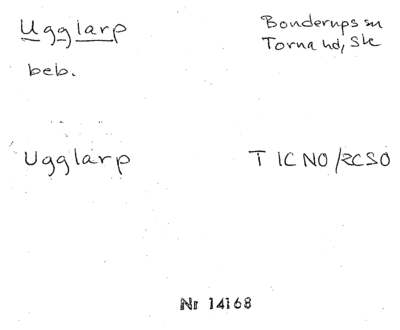 Ugglarp
Bonderups sn
Torna hd, Ske
beb.
Ugglarp
T 1CNO/2CSO
Nr 14168